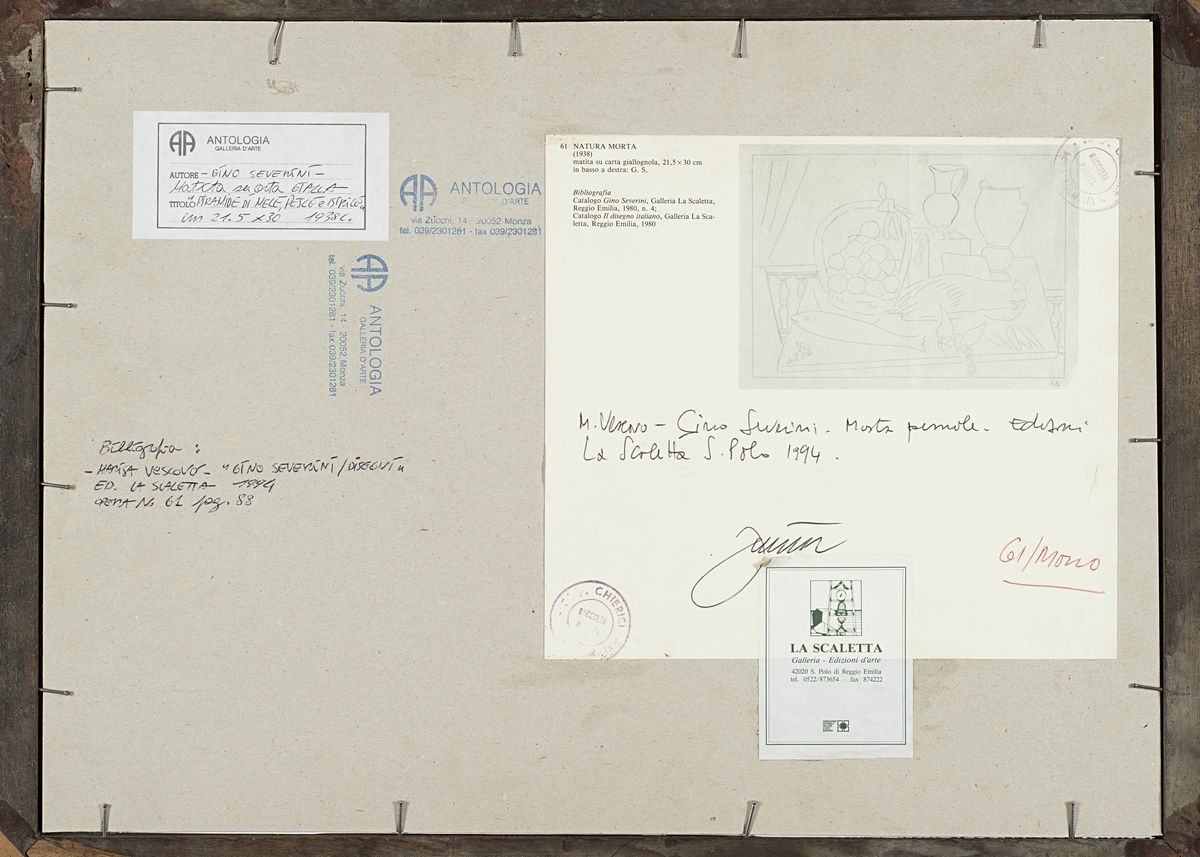 ANTOLOGIA
GALLERIA D'ARTE
AUTORE - GINO SEVERINI -
Matita su carta GIALLA
TITOLO "PIRAMIDE DI MELE PESCE e
cm 21.5 x 30 1938 c.
ANTOLOGIA
GALLERIA D'ARTE
via Zucchi, 14 20052 Monza
tel. 039/2301281 - fax 039/2301281
ANTOLOGIA
GALLERIA D'ARTE
via Zucchi, 14 - 20052 Monza
tel. 039/2301281 - fax 039/2301281
Bibliografia :
- MARISA VESCOVO - "GINO SEVERINI / DISEGNI"
ED. LA SCALETTA 1994
OPERA N. 61 pag. 88
61 NATURA MORTA
(1938)
matita su carta giallognola, 21,5 × 30 cm
in basso a destra: G. S.
Bibliografia
Catalogo Gino Severini, Galleria La Scaletta,
Reggio Emilia, 1980, n. 4;
Catalogo Il disegno italiano, Galleria La Sca-
letta, Reggio Emilia, 1980
RACCOLTA
M. Vescovo - Gino Severini - Mostra personale - Edizioni
La Scaletta S. Polo 1994 .
61/Mono
CHIERICI
RACCOLTA
LA SCALETTA
Galleria - Edizioni d'arte
42020 S. Polo di Reggio Emilia
tel. 0522/873654 - fax 874222